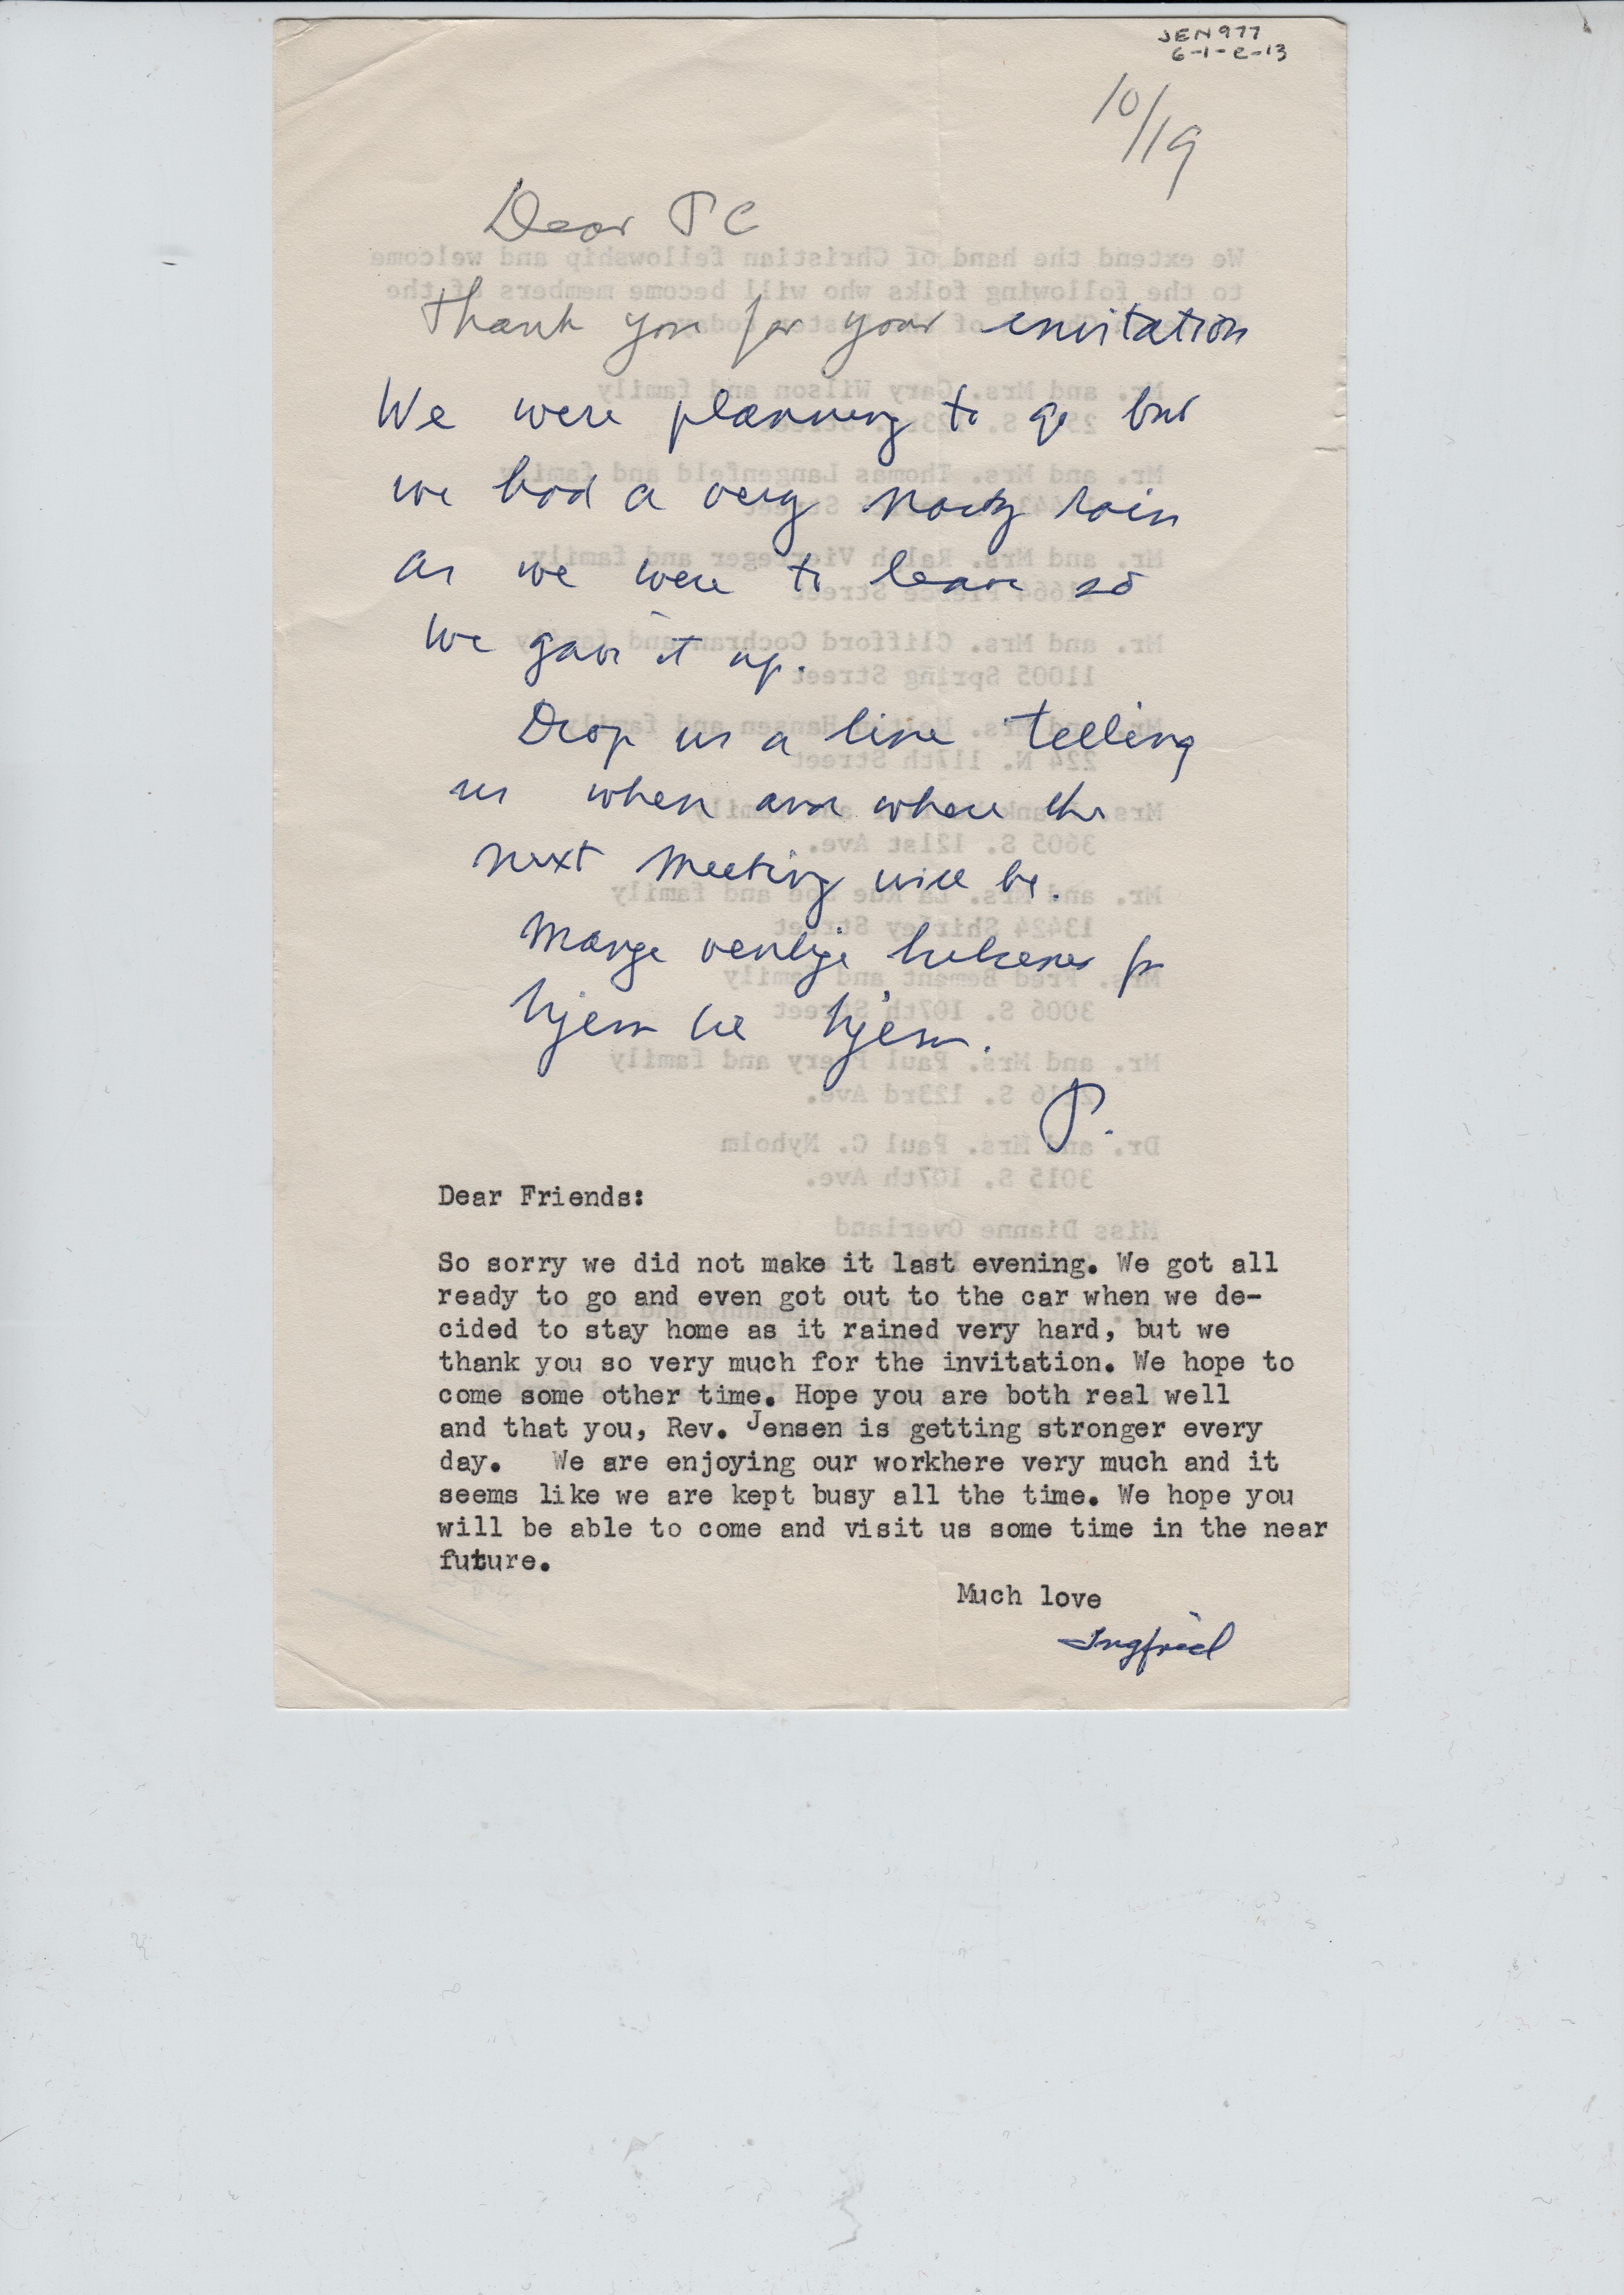 JEN977
6-1-e-13
10/19
Dear PC
Thank you for your invitation
We were planning to go but
we had a very nasty rain
as we were to leave so
we gave it up.
Drop us a line telling
us when and where the
next meeting will be.
Mange venlige hilsener fra
hjem til hjem.
P.
Dear Friends:
So sorry we did not make it last evening. We got all
ready to go and even got out to the car when we de-
cided to stay home as it rained very hard, but we
thank you so very much for the invitation. We hope to
come some other time. Hope you are both real well
and that you, Rev. Jensen is getting stronger every
day. We are enjoying our workhere very much and it
seems like we are kept busy all the time. We hope you
will be able to come and visit us some time in the near
future.
Much love
Ingfried